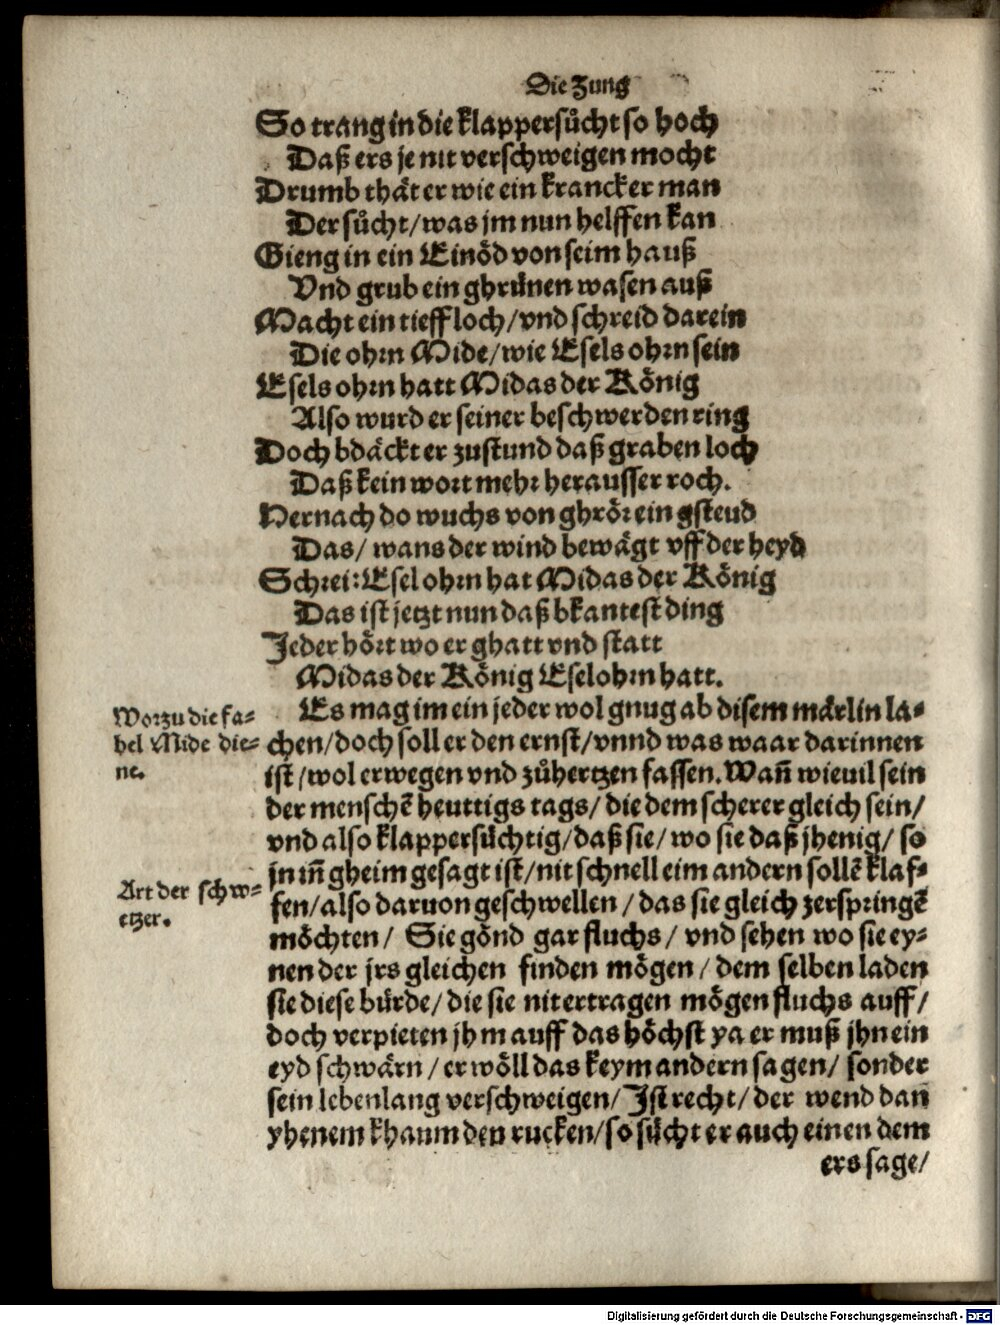 Die Zung
So trang in die klappersücht so hoch
Daß ers je nit verschweigen mocht
Drumb thät er wie ein krancker man
Der sůcht/was jm nun helffen kan
Gieng in ein Einöd von seim hauß
Vnd grub ein ghrünen wasen auß
Macht ein tieff loch/vnd schreid darein
Die ohrn Mide/wie Esels ohrn sein
Esels ohrn hatt Midas der König
Also wurd er seiner beschwerden ring
Doch bdäckt er zustund daß graben loch
Daß kein wort mehr herausser roch.
Hernach do wuchs von ghrör ein gsteud
Das/ wans der wind bewägt vff der heyd
Schrei: Esel ohrn hat Midas der König
Das ist jetzt nun daß bkantest ding
Jeder hört wo er ghatt vnd statt
Midas der König Eselohrn hatt.
Worzu die fa⸗
bel Mide die⸗
ne.
Es mag im ein jeder wol gnug ab disem märlin la⸗
chen/doch soll er den ernst/vnnd was waar darinnen
ist/wol erwegen vnd zůhertzen fassen. Wañ wieuil sein
der menschẽ heuttigs tags/ die dem scherer gleich sein/
vnd also klappersüchtig/daß sie/ wo sie daß jhenig/ so
jn iñ gheim gesagt ist/nit schnell eim andern sollẽ klaf⸗
Art der schw⸗
etzer.
fen/also daruon geschwellen / das sie gleich zerspringẽ
möchten/ Sie gönd gar fluchs/ vnd sehen wo sie ey⸗
nen der jrs gleichen finden mögen / dem selben laden
sie diese bürde/ die sie nit ertragen mögen fluchs auff/
doch verpieten jhm auff das höchst ya er muß jhn ein
eyd schwärn / er wöll das keym andern sagen/ sonder
sein lebenlang verschweigen/ Jst recht/ der wend dan
yhenem khaum den rucken/so sücht er auch einen dem
ers sage/
Digitalisierung gefördert durch die Deutsche Forschungsgemeinschaft - DFG